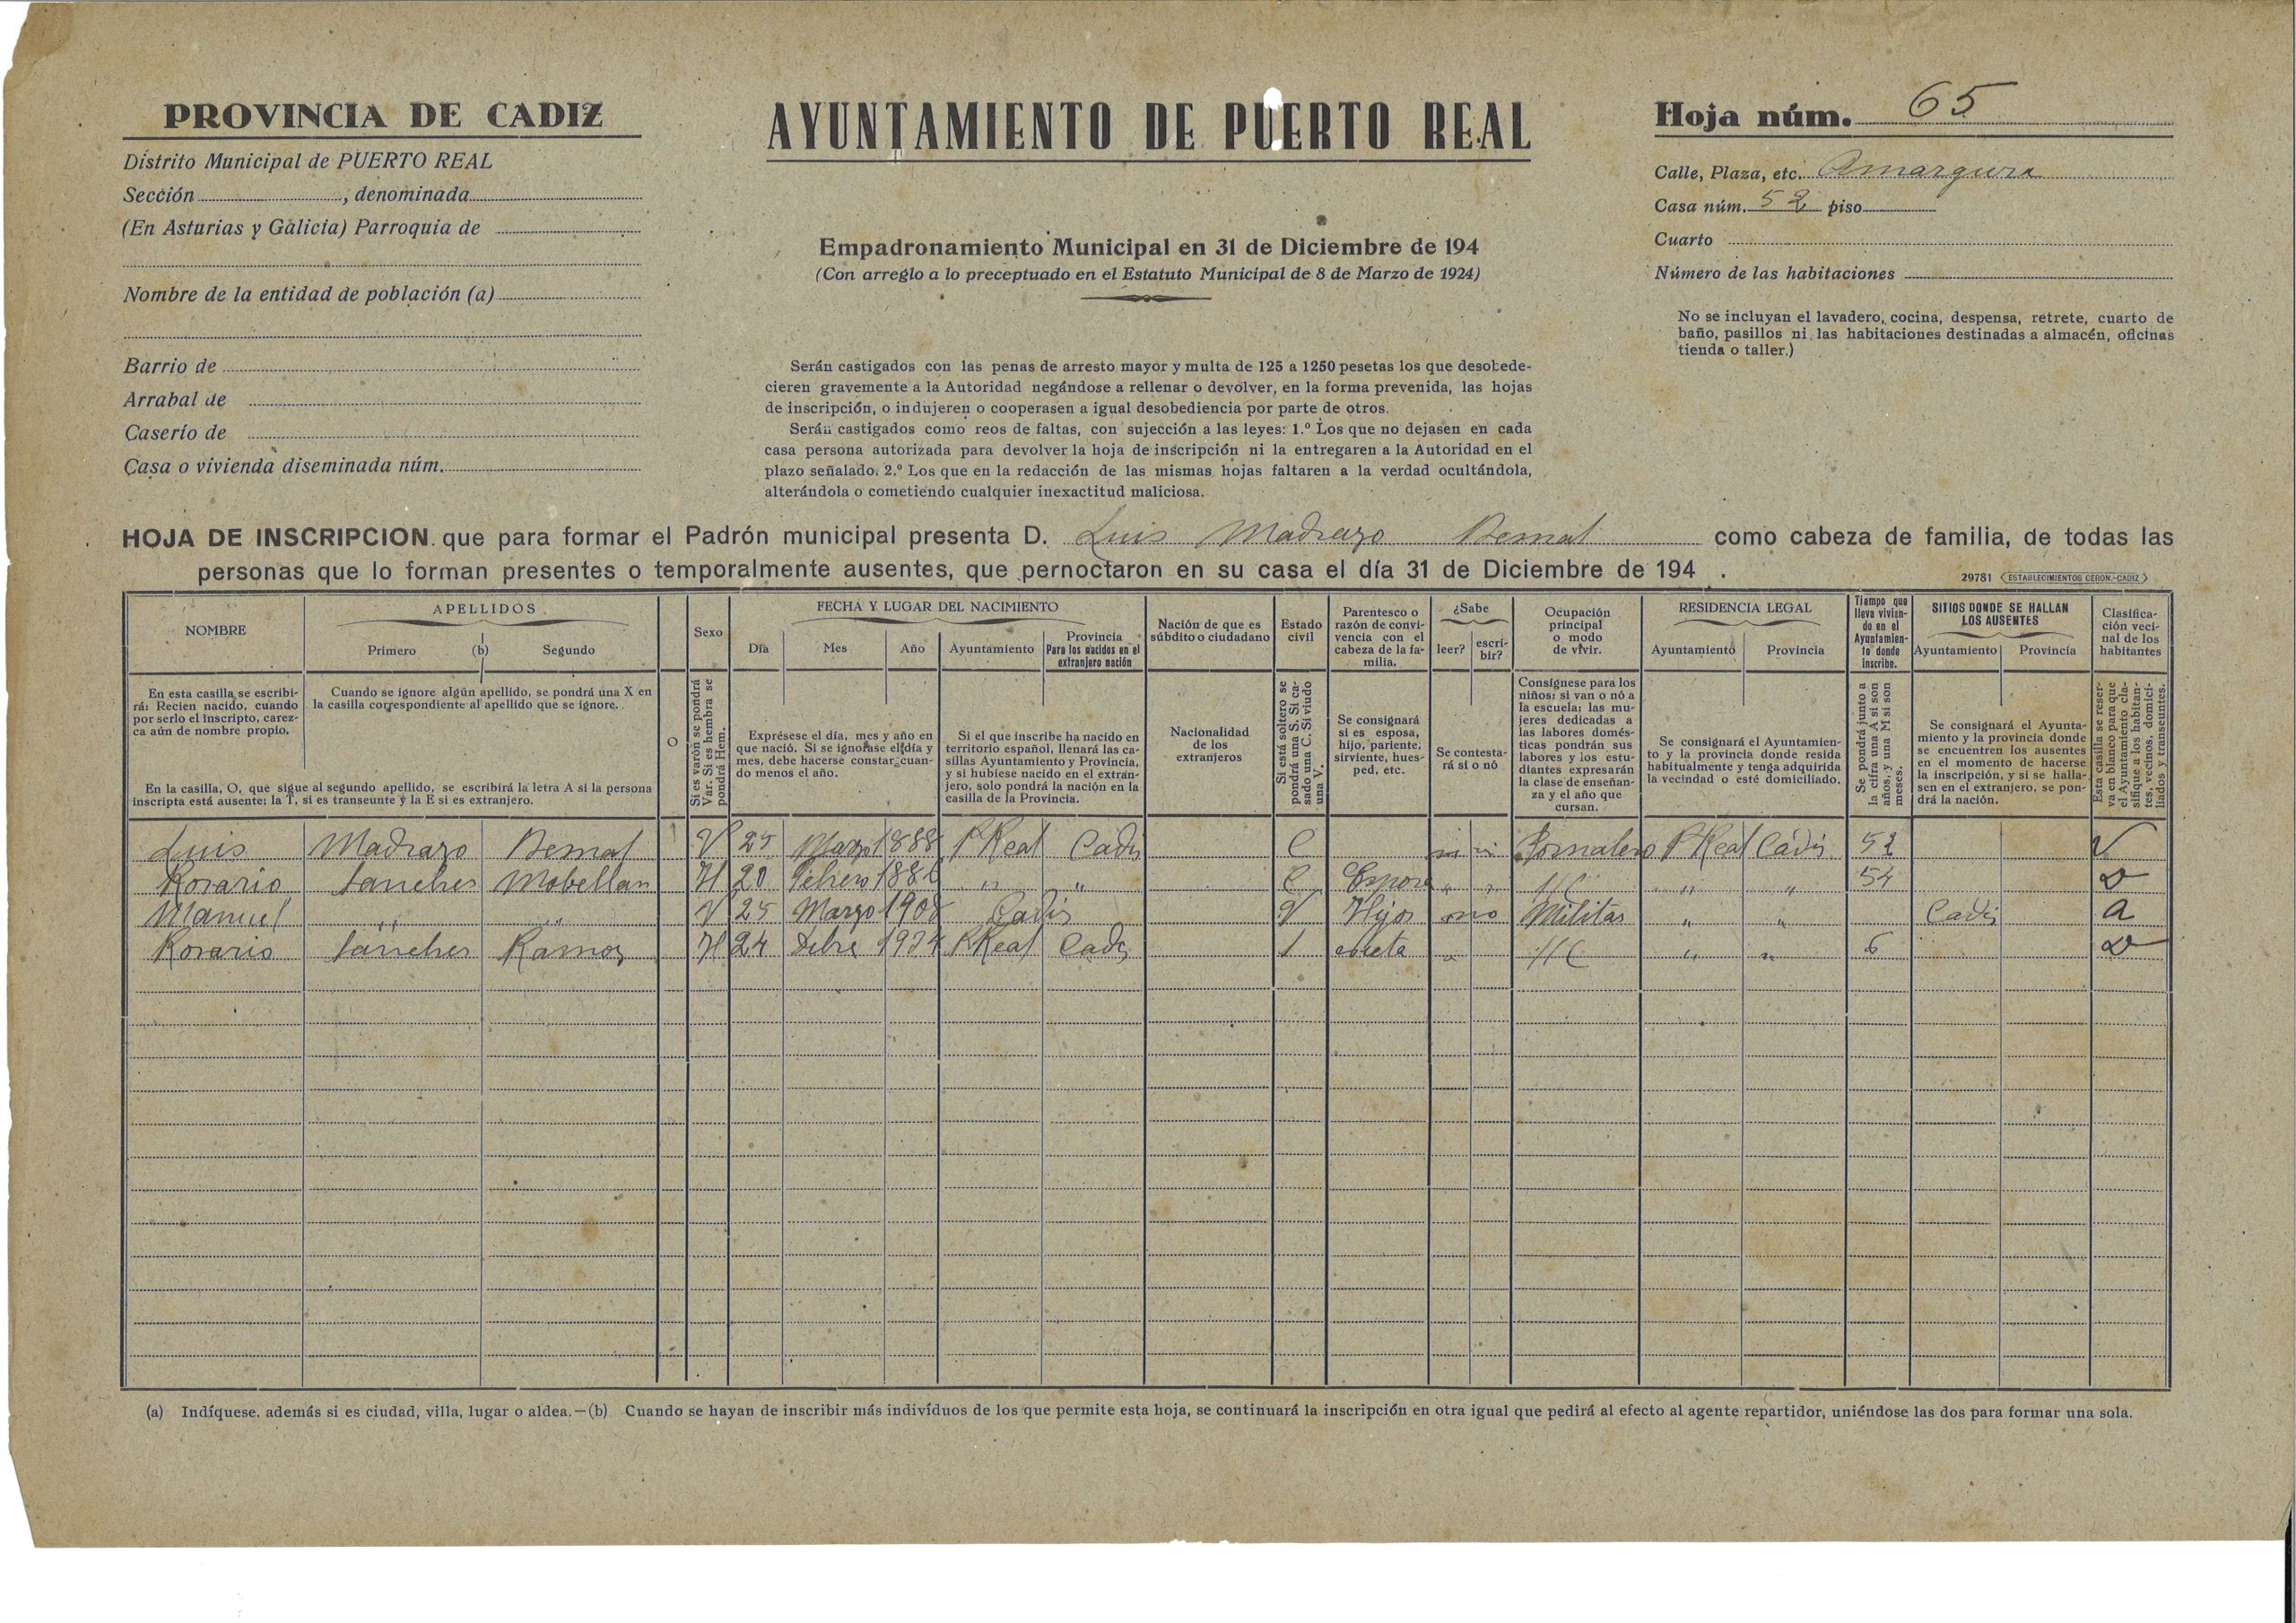 PROVINCIA DE CADIZ
Distrito Municipal de PUERTO REAL
Sección , denominada
(En Asturias y Galicia) Parroquia de
Nombre de la entidad de población (a)
Barrio de
Arrabal de
Caserío de
Casa o vivienda diseminada núm.
AYUNTAMIENTO DE PUERTO REAL
Empadronamiento Municipal en 31 de Diciembre de 194
(Con arreglo a lo preceptuado en el Estatuto Municipal de 8 de Marzo de 1924)
Serán castigados con las penas de arresto mayor y multa de 125 a 1250 pesetas los que desobede-
cieren gravemente a la Autoridad negándose a rellenar o devolver, en la forma prevenida, las hojas
de inscripción, o indujeren o cooperasen a igual desobediencia por parte de otros.
Serán castigados como reos de faltas, con sujección a las leyes: 1.º Los que no dejasen en cada
casa persona autorizada para devolver la hoja de inscripción ni la entregaren a la Autoridad en el
plazo señalado. 2.º Los que en la redacción de las mismas hojas faltaren a la verdad ocultándola,
alterándola o cometiendo cualquier inexactitud maliciosa.
Hoja núm. 65
Calle, Plaza, etc. Amargura
Casa núm. 52 piso
Cuarto
Número de las habitaciones
No se incluyan el lavadero, cocina, despensa, retrete, cuarto de
baño, pasillos ni las habitaciones destinadas a almacén, oficinas
tienda o taller.)
HOJA DE INSCRIPCION que para formar el Padrón municipal presenta D. Luis Madrazo Bernal como cabeza de familia, de todas las
personas que lo forman presentes o temporalmente ausentes, que pernoctaron en su casa el día 31 de Diciembre de 194 .
29781 ESTABLECIMIENTOS CERON.-CADIZ
NOMBRE
En esta casilla se escribi-
rá: Recien nacido, cuando
por serlo el inscripto, carez-
ca aún de nombre propio.
APELLIDOS
Primero (b) Segundo
Cuando se ignore algún apellido, se pondrá una X en
la casilla correspondiente al apellido que se ignore.
En la casilla, O, que sigue al segundo apellido, se escribirá la letra A si la persona
inscripta está ausente; la T, si es transeunte y la E si es extranjero.
O
Sexo
Si es varón se pondrá
Var. Si es hembra se
pondrá Hem.
FECHA Y LUGAR DEL NACIMIENTO
Día Mes Año Ayuntamiento
Provincia
Para los nacidos en el
extranjero nación
Exprésese el día, mes y año en
que nació. Si se ignorase el día y
mes, debe hacerse constar cuan-
do menos el año.
Si el que inscribe ha nacido en
territorio español, llenará las ca-
sillas Ayuntamiento y Provincia,
y si hubiese nacido en el extran-
jero, solo pondrá la nación en la
casilla de la Provincia.
Nación de que es
súbdito o ciudadano
Nacionalidad
de los
extranjeros
Estado
civil
Si está soltero se
pondrá una S. Si ca-
sado una C. Si viudo
una V.
Parentesco o
razón de convi-
vencia con el
cabeza de la fa-
milia.
Se consignará
si es esposa,
hijo, pariente,
sirviente, hues-
ped, etc.
¿Sabe
leer? escri-
bir?
Se contesta-
rá si o nó
Ocupación
principal
o modo
de vivir.
Consígnese para los
niños: si van o nó a
la escuela; las mu-
jeres dedicadas a
las labores domés-
ticas pondrán sus
labores y los estu-
diantes expresarán
la clase de enseñan-
za y el año que
cursan.
RESIDENCIA LEGAL
Ayuntamiento Provincia
Se consignará el Ayuntamien-
to y la provincia donde resida
habitualmente y tenga adquirida
la vecindad o esté domiciliado.
Tiempo que
lleva vivien-
do en el
Ayuntamien-
to donde
inscribe.
Se pondrá junto a
la cifra una A si son
años, y una M si son
meses.
SITIOS DONDE SE HALLAN
LOS AUSENTES
Ayuntamiento Provincia
Se consignará el Ayunta-
miento y la provincia donde
se encuentren los ausentes
en el momento de hacerse
la inscripción, y si se halla-
sen en el extranjero, se pon-
drá la nación.
Clasifica-
ción veci-
nal de los
habitantes
Esta casilla se reser-
va en blanco para que
el Ayuntamiento cla-
sifique a los habitan-
tes, vecinos, domici-
liados y transeuntes.
Luis Madrazo Bernal V 25 Marzo 1888 P Real Cadiz C Jornalero P Real Cadiz 52 V
Rosario Sanches H 20 Febrero " " C Esposa " " " " 54
Manuel " " V 25 Marzo 1908 Cadiz Hijos no Militar " " Cadiz a
Rosario Sanches Ramos H 24 1934 P Real Cadiz nieta " " " 6
(a) Indíquese. además si es ciudad, villa, lugar o aldea.—(b) Cuando se hayan de inscribir más indivíduos de los que permite esta hoja, se continuará la inscripción en otra igual que pedirá al efecto al agente repartidor, uniéndose las dos para formar una sola.